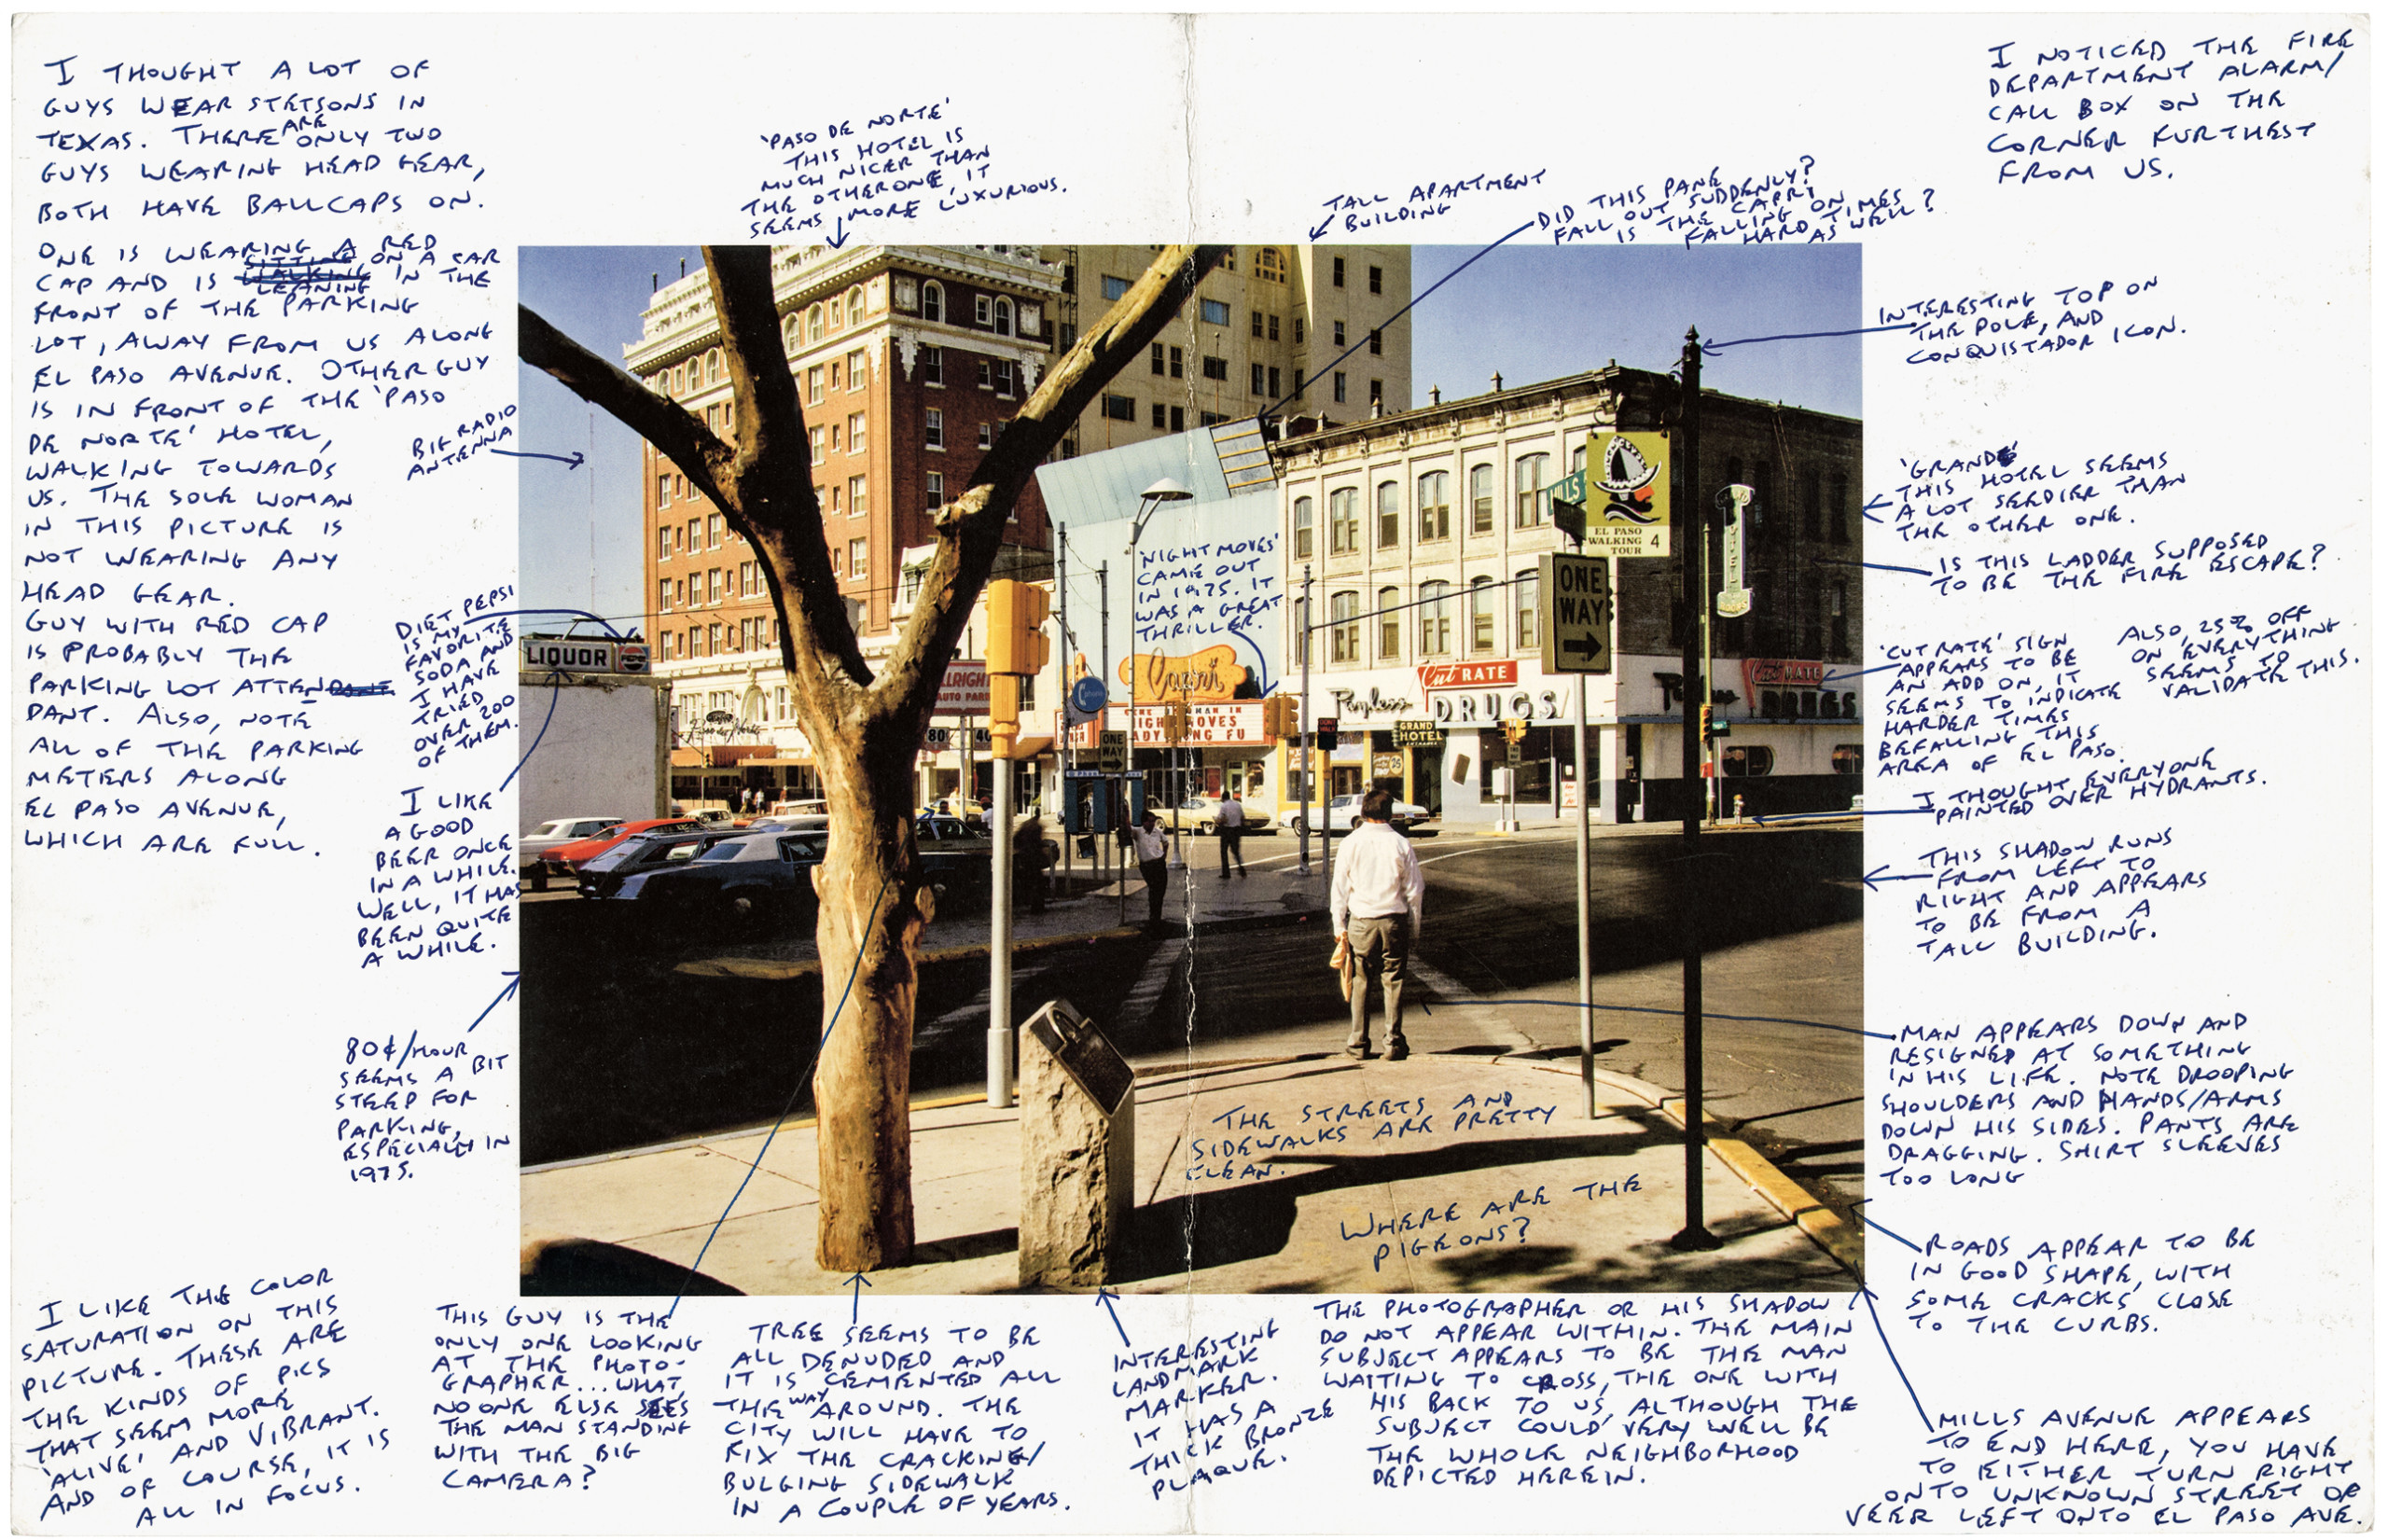 I THOUGHT A LOT OF
GUYS WEAR STETSONS IN
TEXAS. THERE ARE ONLY TWO
GUYS WEARING HEAD GEAR,
BOTH HAVE BALLCAPS ON.
ONE IS WEARING A RED
CAP AND IS LEANING ON A CAR IN THE
FRONT OF THE PARKING
LOT, AWAY FROM US ALONG
EL PASO AVENUE. OTHER GUY
IS IN FRONT OF THE 'PASO
DE NORTE' HOTEL,
WALKING TOWARDS
US. THE SOLE WOMAN
IN THIS PICTURE IS
NOT WEARING ANY
HEAD GEAR.
GUY WITH RED CAP
IS PROBABLY THE
PARKING LOT ATTEN
DANT. ALSO, NOTE
ALL OF THE PARKING
METERS ALONG
EL PASO AVENUE,
WHICH ARE FULL.
'PASO DE NORTE'
THIS HOTEL IS
MUCH NICER THAN
THE OTHER ONE, IT
SEEMS MORE LUXURIOUS.
TALL APARTMENT
BUILDING
DID THIS PANE
FALL OUT SUDDENLY?
IS THE CAPRI
FALLING ON
HARD TIMES
AS WELL?
I NOTICED THE FIRE
DEPARTMENT ALARM/
CALL BOX ON THE
CORNER FURTHEST
FROM US.
INTERESTING TOP ON
THE POLE, AND
CONQUISTADOR ICON.
BIG RADIO
ANTENNA
'GRAND'
THIS HOTEL SEEMS
A LOT SEEDIER THAN
THE OTHER ONE.
IS THIS LADDER SUPPOSED
TO BE THE FIRE ESCAPE?
DIET PEPSI
IS MY
FAVORITE
SODA AND
I HAVE
TRIED
OVER 200
OF THEM.
'NIGHT MOVES'
CAME OUT
IN 1975. IT
WAS A GREAT
THRILLER.
MILLS
EL PASO
WALKING
TOUR 4
ONE
WAY
HOTEL
LIQUOR
PEPSI
Capri
GENE HACKMAN IN
NIGHT MOVES
LADY KUNG FU
phone
ALLRIGHT
AUTO PARK
80
40
Paso del Norte
ONE
WAY
Cut RATE
Payless
DRUGS
GRAND
HOTEL
ENTRANCE
25
Cut RATE
Payless
DRUGS
'CUT RATE' SIGN
APPEARS TO BE
AN ADD ON, IT
SEEMS TO INDICATE
HARDER TIMES
BEFALLING THIS
AREA OF EL PASO.
ALSO, 25% OFF
ON EVERYTHING
SEEMS TO
VALIDATE THIS.
I THOUGHT EVERYONE
PAINTED OVER HYDRANTS.
I LIKE
A GOOD
BEER ONCE
IN A WHILE.
WELL, IT HAS
BEEN QUITE
A WHILE.
THIS SHADOW RUNS
FROM LEFT TO
RIGHT AND APPEARS
TO BE FROM A
TALL BUILDING.
80¢/HOUR
SEEMS A BIT
STEEP FOR
PARKING,
ESPECIALLY IN
1975.
MAN APPEARS DOWN AND
RESIGNED AT SOMETHING
IN HIS LIFE. NOTE DROOPING
SHOULDERS AND HANDS/ARMS
DOWN HIS SIDES. PANTS ARE
DRAGGING. SHIRT SLEEVES
TOO LONG
THE STREETS AND
SIDEWALKS ARE PRETTY
CLEAN.
WHERE ARE THE
PIGEONS?
ROADS APPEAR TO BE
IN GOOD SHAPE, WITH
SOME CRACKS CLOSE
TO THE CURBS.
I LIKE THE COLOR
SATURATION ON THIS
PICTURE. THESE ARE
THE KINDS OF PICS
THAT SEEM MORE
'ALIVE' AND VIBRANT.
AND OF COURSE, IT IS
ALL IN FOCUS.
THIS GUY IS THE
ONLY ONE LOOKING
AT THE PHOTO-
GRAPHER... WHAT,
NO ONE ELSE SEES
THE MAN STANDING
WITH THE BIG
CAMERA?
TREE SEEMS TO BE
ALL DENUDED AND
IT IS CEMENTED ALL
THE WAY AROUND. THE
CITY WILL HAVE TO
FIX THE CRACKING/
BULGING SIDEWALK
IN A COUPLE OF YEARS.
INTERESTING
LANDMARK
MARKER.
IT HAS A
THICK BRONZE
PLAQUE.
THE PHOTOGRAPHER OR HIS SHADOW
DO NOT APPEAR WITHIN. THE MAIN
SUBJECT APPEARS TO BE THE MAN
WAITING TO CROSS, THE ONE WITH
HIS BACK TO US, ALTHOUGH THE
SUBJECT COULD VERY WELL BE
THE WHOLE NEIGHBORHOOD
DEPICTED HEREIN.
MILLS AVENUE APPEARS
TO END HERE, YOU HAVE
TO EITHER TURN RIGHT
ONTO UNKNOWN STREET OR
VEER LEFT ONTO EL PASO AVE.